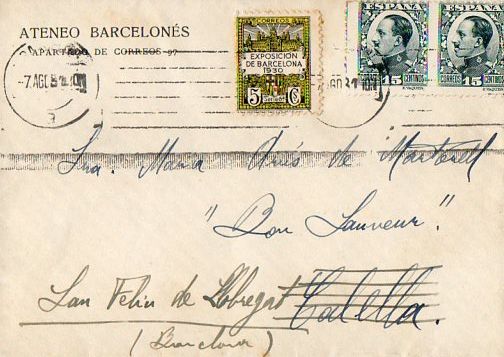 ATENEO BARCELONÉS
APARTADO DE CORREOS 97
-7.AGO.31.10
CORREOS
EXPOSICIÓN
DE BARCELONA
1930
5 Cs
ESPAÑA
15 CORREOS CENTIMOS
ESPAÑA
CORREOS 15 CENTIMOS
AGO 31 10
Sra. Maria de Martorell
"Bon Sauveur".
San Feliu de Llobregat Calella.
(Barcelona)